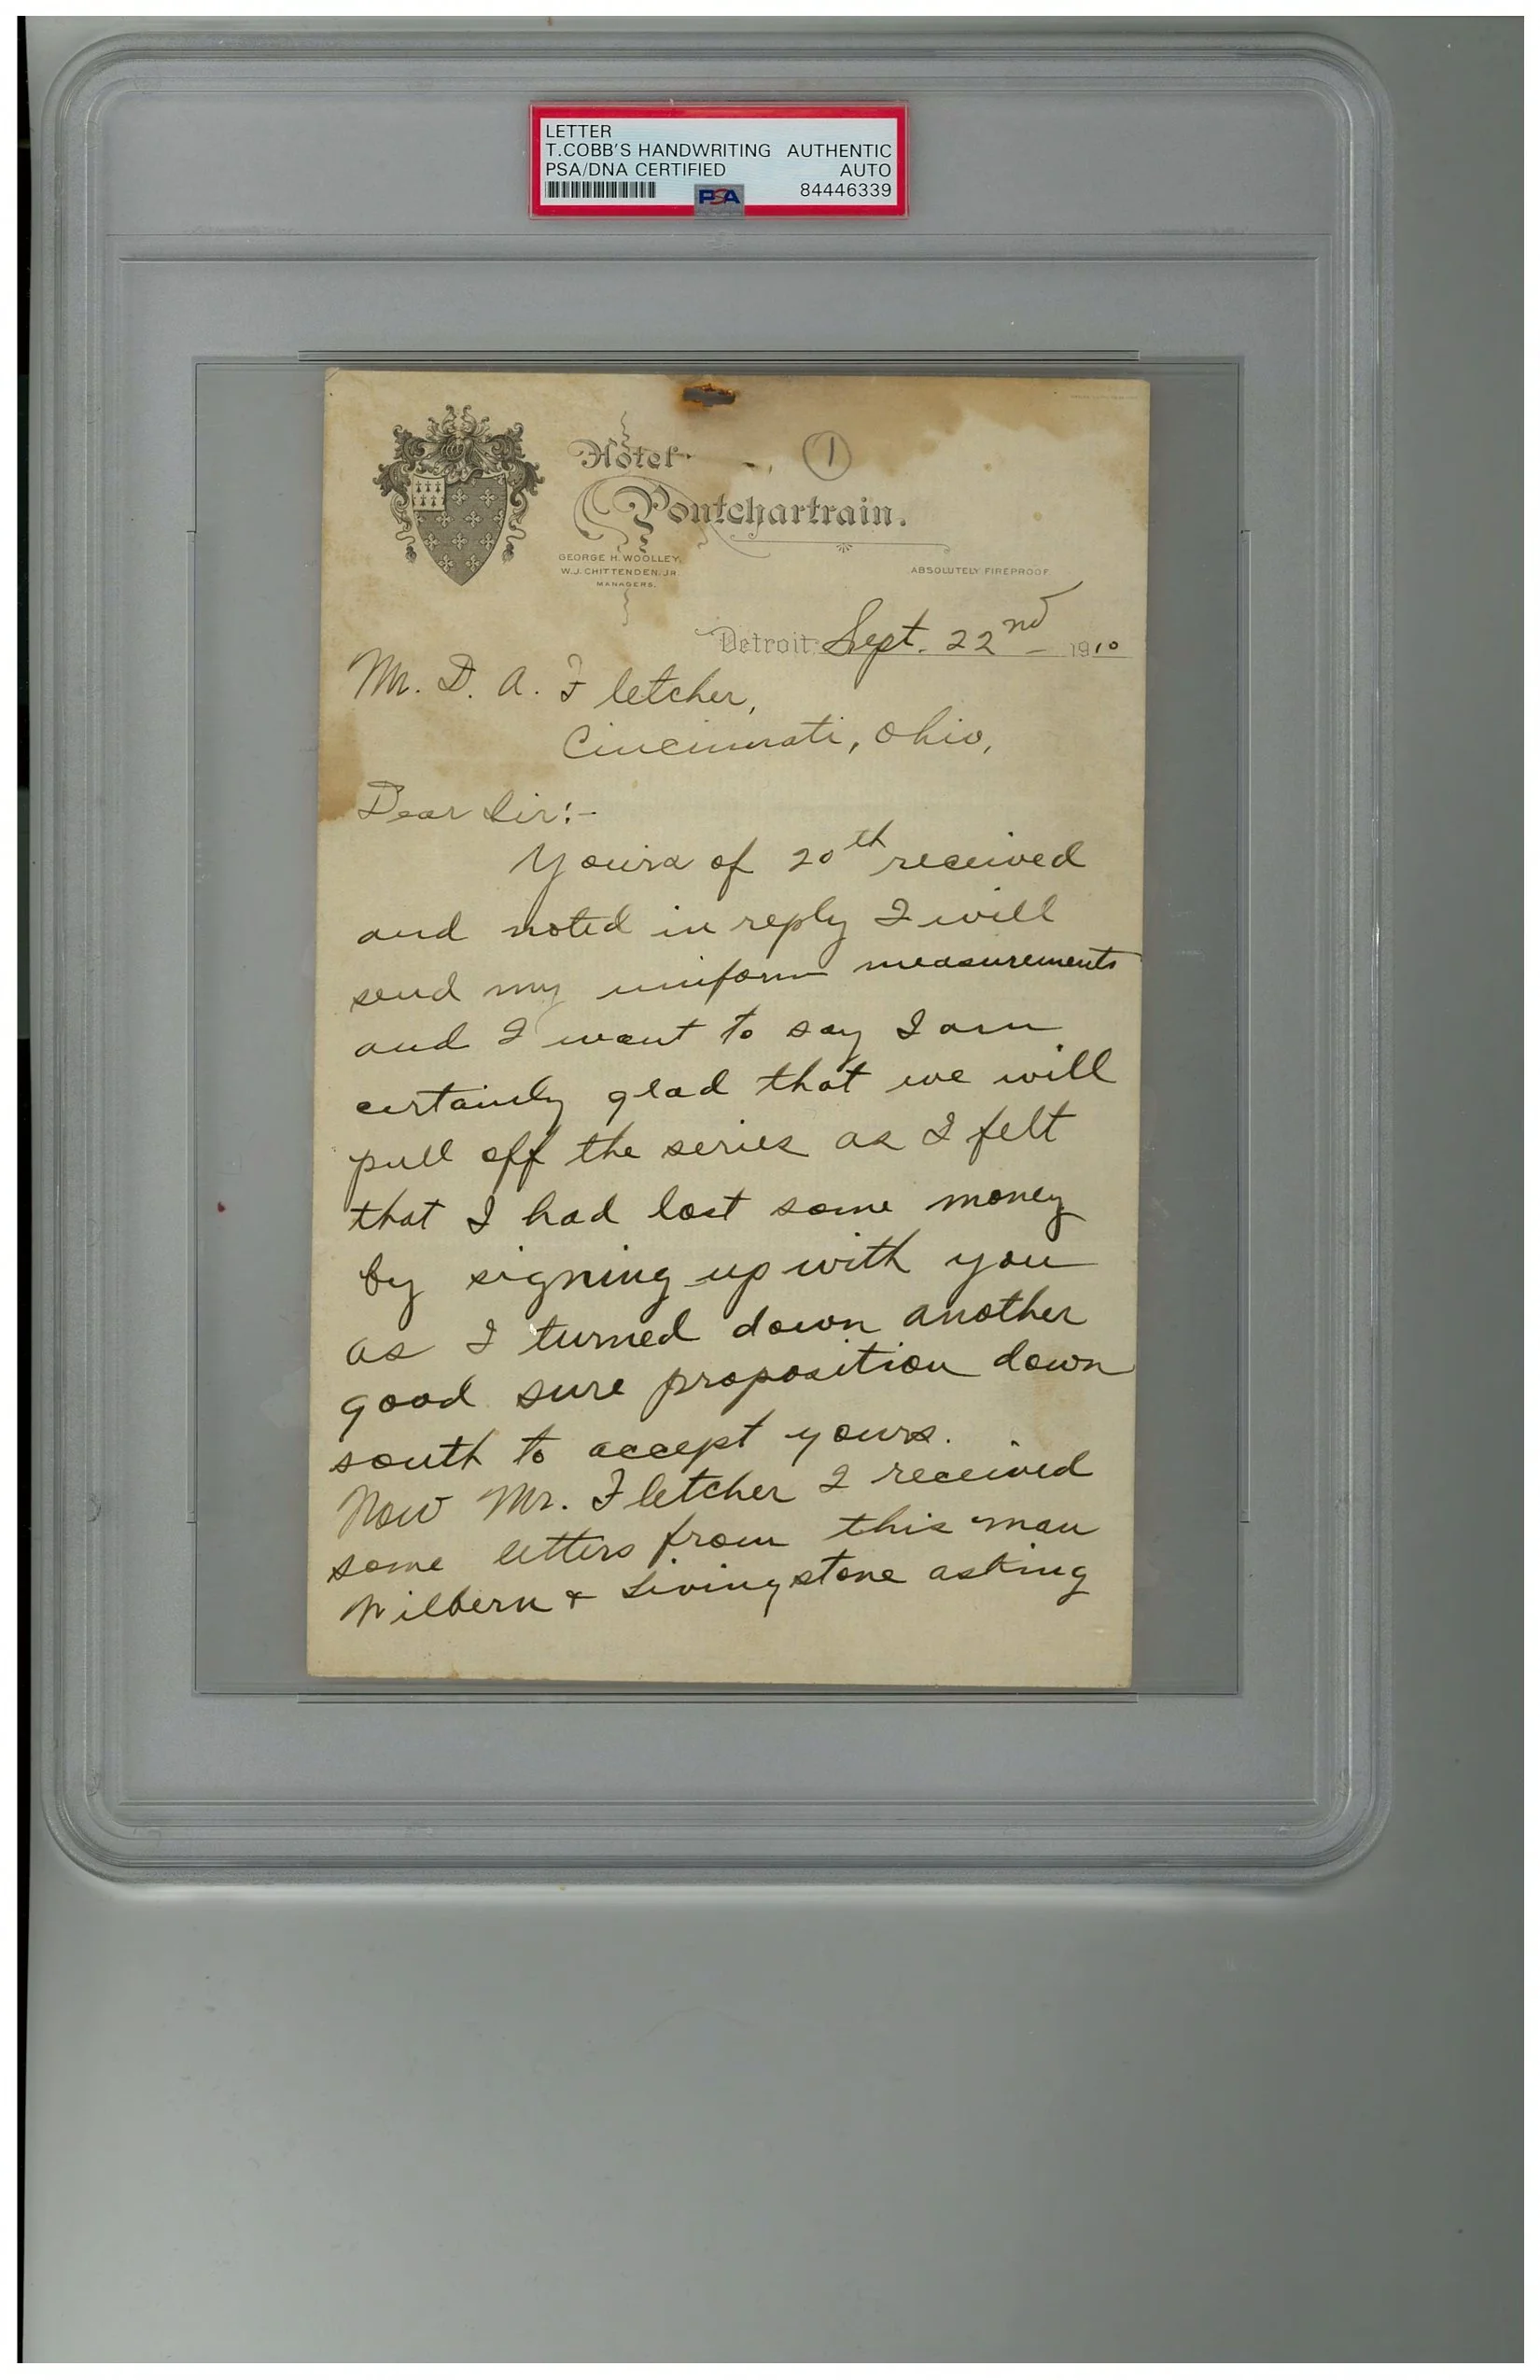 LETTER
T.COBB'S HANDWRITING AUTHENTIC
PSA/DNA CERTIFIED AUTO
PSA 84446339
1
Hotel
Pontchartrain.
GEORGE H. WOOLLEY,
W.J. CHITTENDEN, JR.
MANAGERS.
ABSOLUTELY FIREPROOF
Detroit Sept. 22nd – 1910
Mr. D. A. Fletcher,
Cincinnati, Ohio,
Dear Sir:-
Yours of 20th received
and noted in reply I will
send my uniform measurements
and I want to say I am
certainly glad that we will
pull off the series as I felt
that I had lost some money
by signing up with you
as I turned down another
good sure proposition down
south to accept yours.
Now Mr. Fletcher I received
some letters from this man
Wilbern & Livingstone asking